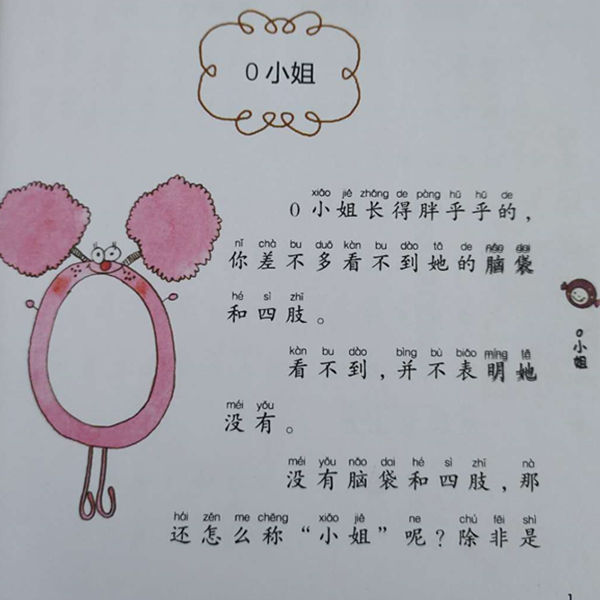 0 小姐
xiǎo jiě zhǎng de pàng hū hū de
0 小姐长得胖乎乎的，
nǐ chà bu duō kàn bu dào tā de nǎo dai
你差不多看不到她的脑袋
hé sì zhī
和四肢。
kàn bu dào bìng bù biǎo míng tā
看不到，并不表明她
méi yǒu
没有。
méi yǒu nǎo dai hé sì zhī nà
没有脑袋和四肢，那
hái zěn me chēng xiǎo jiě ne chú fēi shì
还怎么称“小姐”呢？除非是
0小姐
1